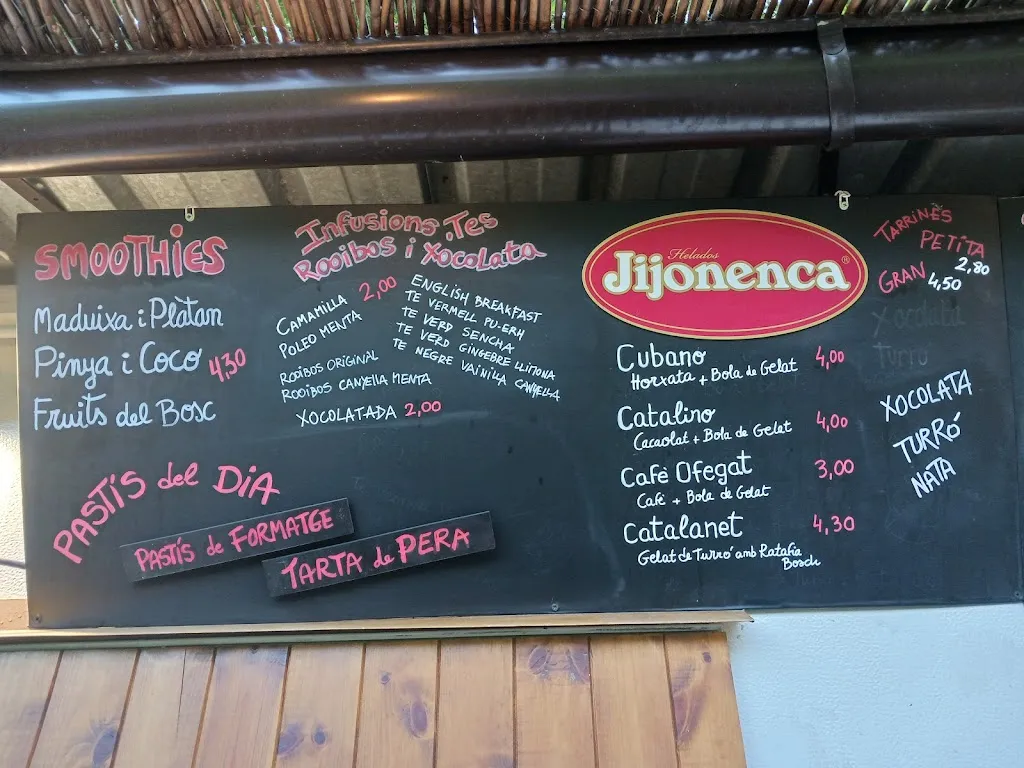 SMOOTHIES
Maduixa i Platan
Pinya i Coco 4,30
Fruits del Bosc
PASTÍS del DIA
PASTÍS de FORMATGE
TARTA de PERA
Infusions, Tes
Rooibos i Xocolata
CAMAMILLA 2,00
POLEO MENTA
ROOIBOS ORIGINAL
ROOIBOS CANYELLA MENTA
XOCOLATADA 2,00
ENGLISH BREAKFAST
TE VERMELL PU-ERH
TE VERD SENCHA
TE VERD GINGEBRE LLIMONA
TE NEGRE VAINILLA CANYELLA
Helados
Jijonenca®
Cubano 4,00
Horxata + Bola de Gelat
Catalino 4,00
Cacaolat + Bola de Gelat
Cafè Ofegat 3,00
Cafè + Bola de Gelat
Catalanet 4,30
Gelat de Turró amb Ratafia
Bosch
TARRINES
PETITA
2,80
GRAN 4,50
Xocolata
Turro
XOCOLATA
TURRÓ
NATA